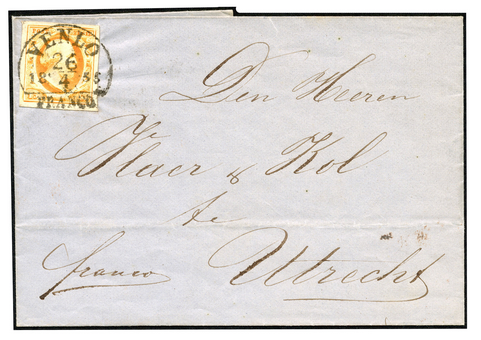 VENLO
26
18 4 53
FRANCO
Den Heeren
Vlaer & Kol
te
franco
Utrecht